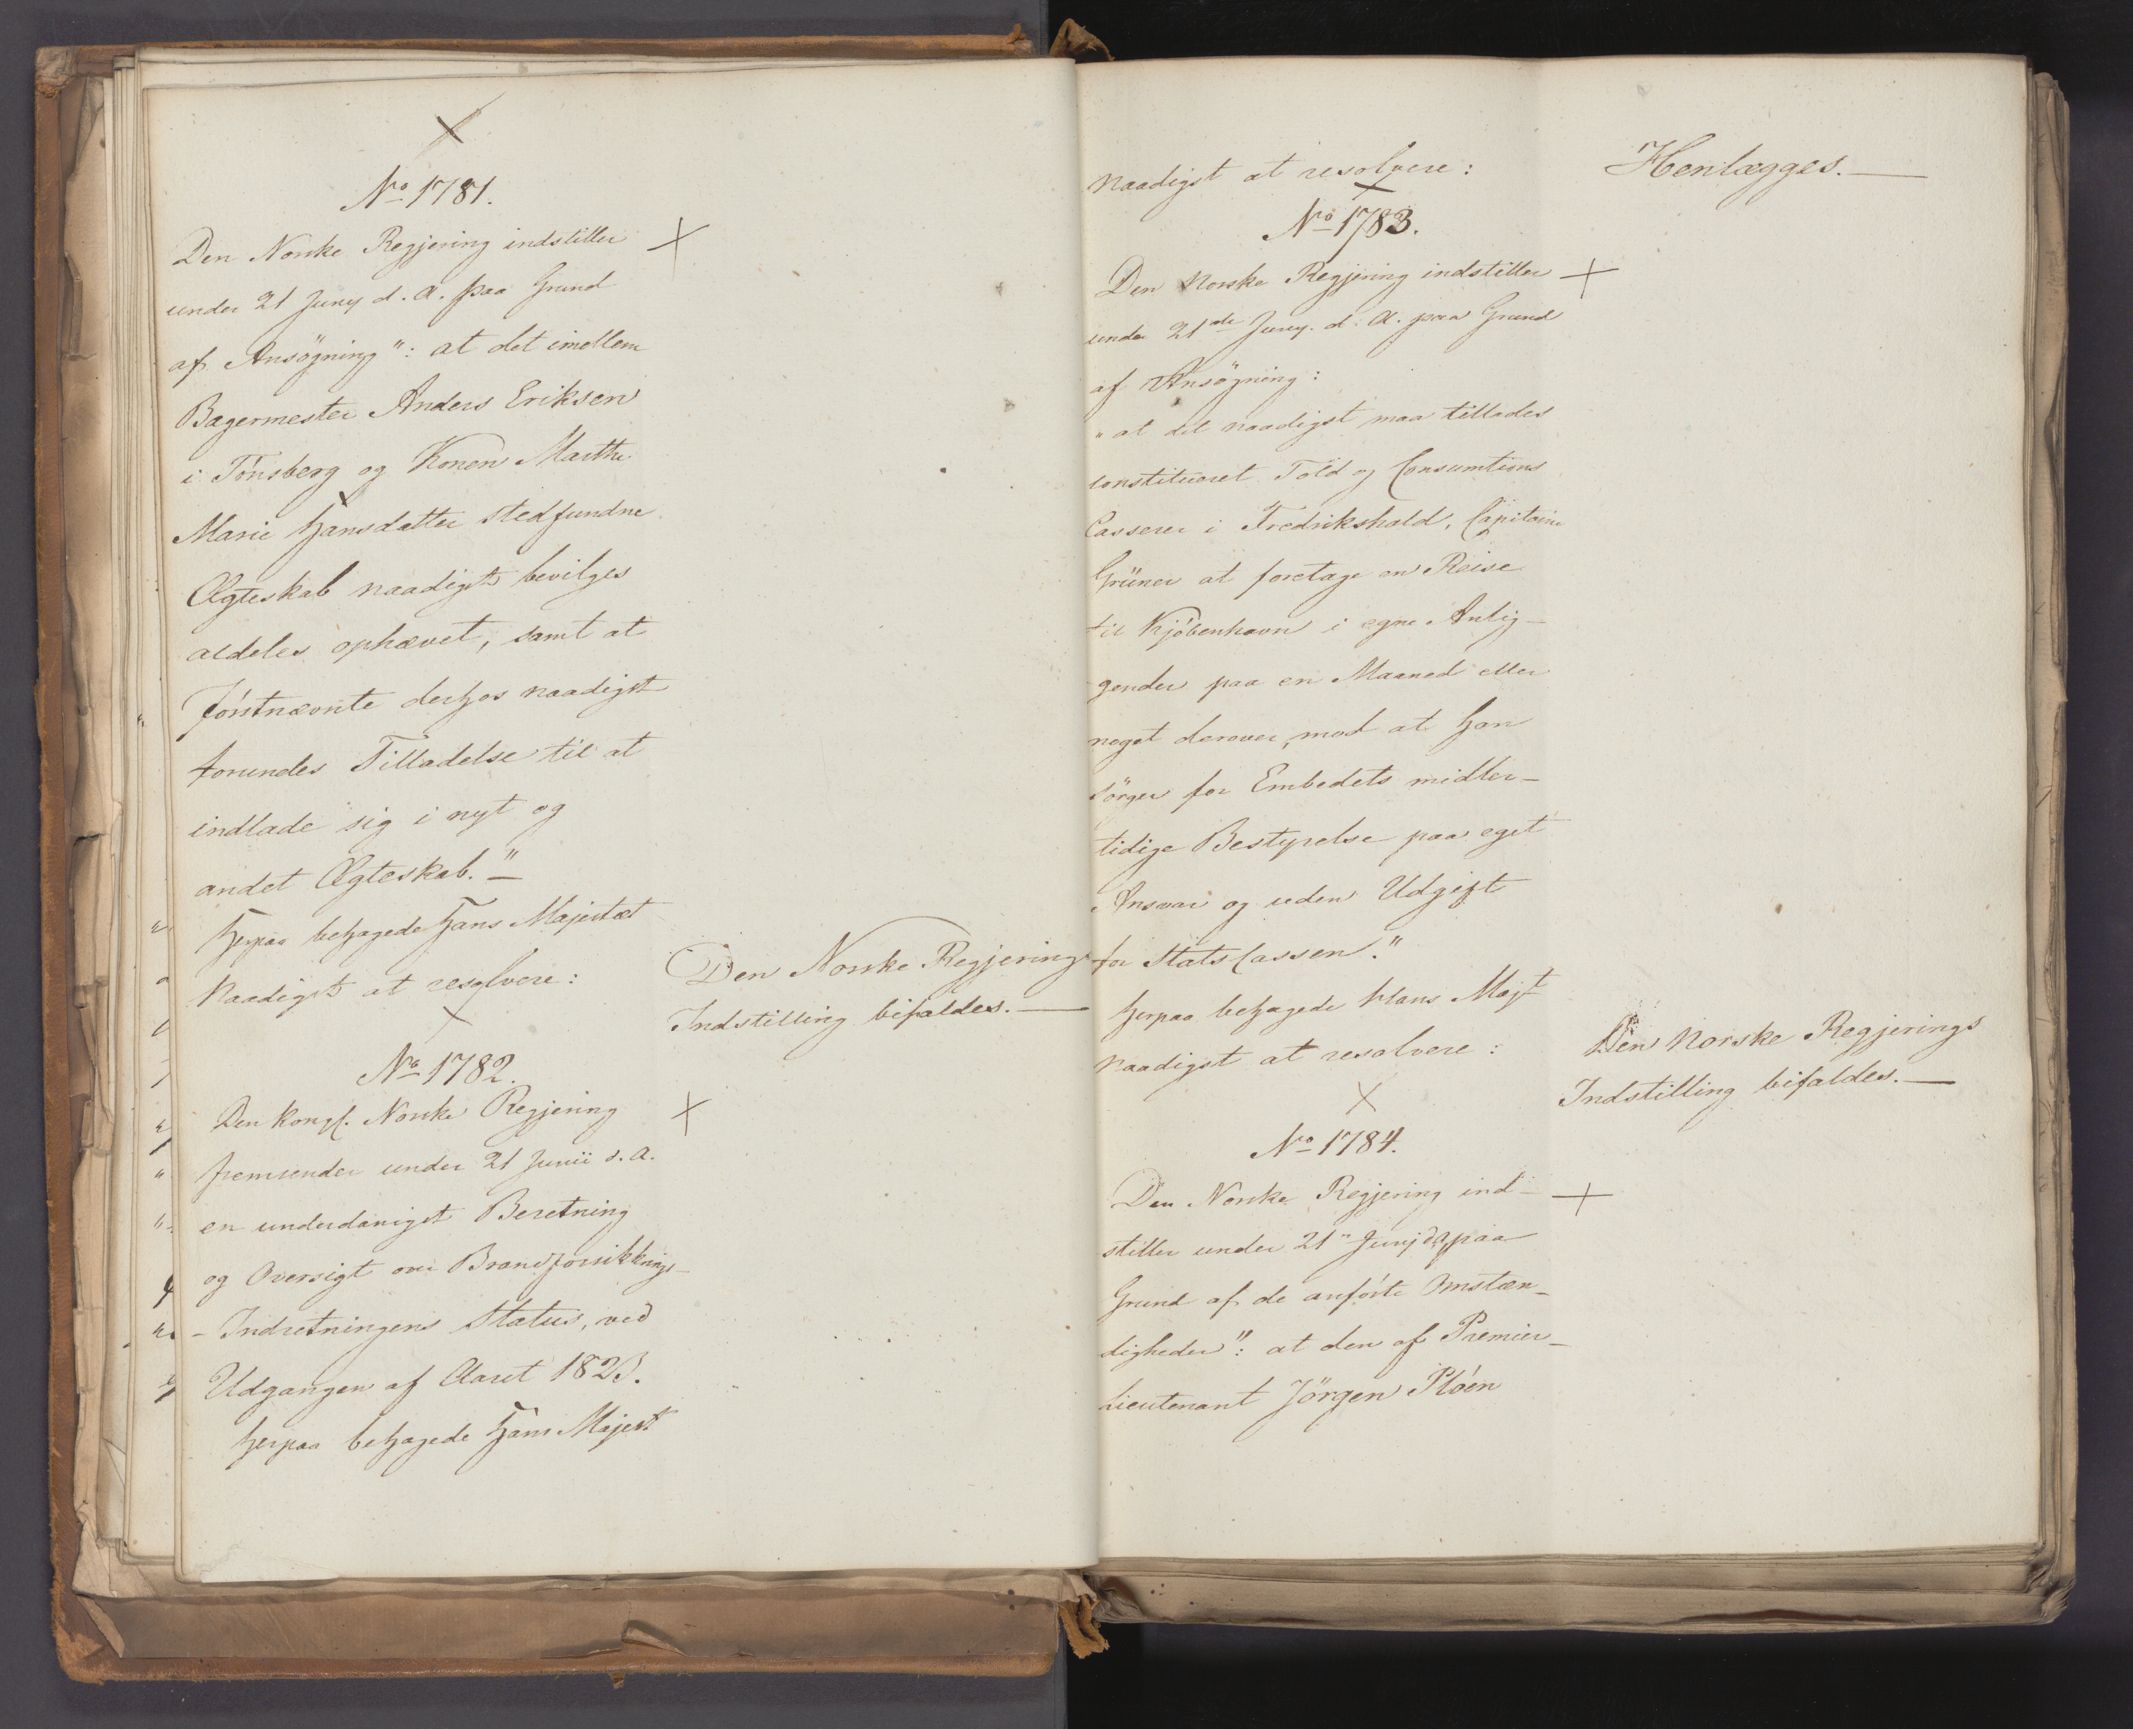 No 1781.
Den Norske Regjering indstiller
under 21 Juny d. A. paa Grund
af Ansögning": at det imellem
Bagermester Anders Eriksen
i Tönsberg og Konen Marthe
Marie Hansdatter stedfundne
Ægteskab naadigst bevilges
aldeles ophævet, samt at
Förstnævnte derhos naadigst
forundes Tilladelse til at
indlade sig i nyt og
andet Ægteskab."
Herpaa behagede Hans Majestæt
Naadigst at resolvere:
Den Norske Regjerings
Indstilling bifaldes.
No 1782.
Den Kongl. Norske Regjering
fremsender under 21 Junii d. A.
en underdanigst Beretning
og Oversigt over Brandforsikkrings-
- Indretningens Status, ved
Udgangen af Aaret 1823.
Herpaa behagede Hans Majest
naadigst at resolvere:
Henlægges.
No 1783.
Den Norske Regjering indstiller
under 21de Juny. d. A. paa Grund
af Ansögning:
"at det naadigst maa tillades
constitueret Told og Consumtions
Casserer i Fredrikshald, Capitain
Grüner at foretage en Reise
til Kjöbenhavn i egne Anlig-
gender paa en Maaned eller
noget derover, mod at han
sörger for Embedets midler-
tidige Bestyrelse paa eget
Ansvar og uden Udgift
for Stats Cassen."
Herpaa behagede Hans Majt
naadigst at resolvere:
Den Norske Regjerings
Indstilling bifaldes.
No 1784.
Den Norske Regjering ind-
stiller under 21 Junj d. A. paa
Grund af de anförte Omstæn-
digheder": at den af Premier-
Lieutenant Jörgen Plöen